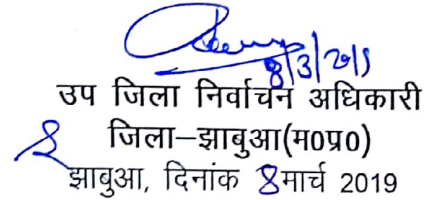 8/3/2019
उप जिला निर्वाचन अधिकारी
जिला–झाबुआ(म0प्र0)
झाबुआ, दिनांक 8मार्च 2019